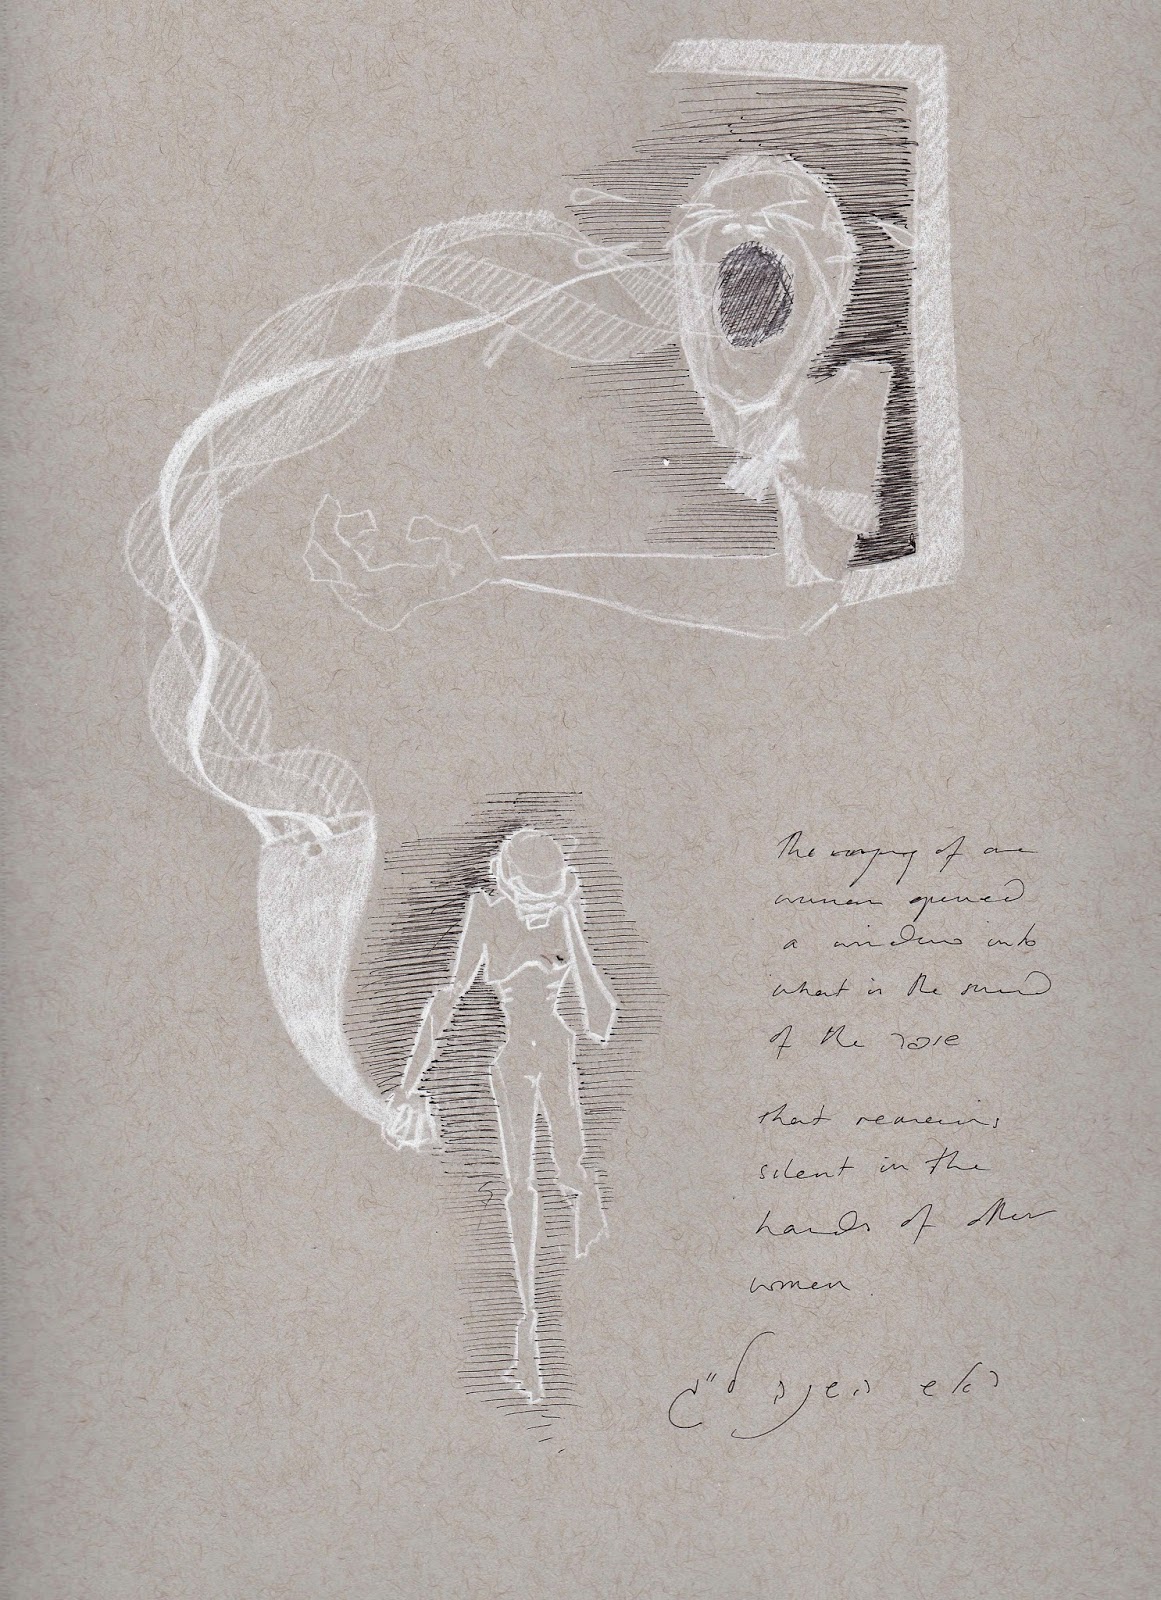 The weeping of one
woman opened
a window into
what is the sound
of the שופר
that remains
silent in the
hands of other
women.
ראש השנה ל״ג